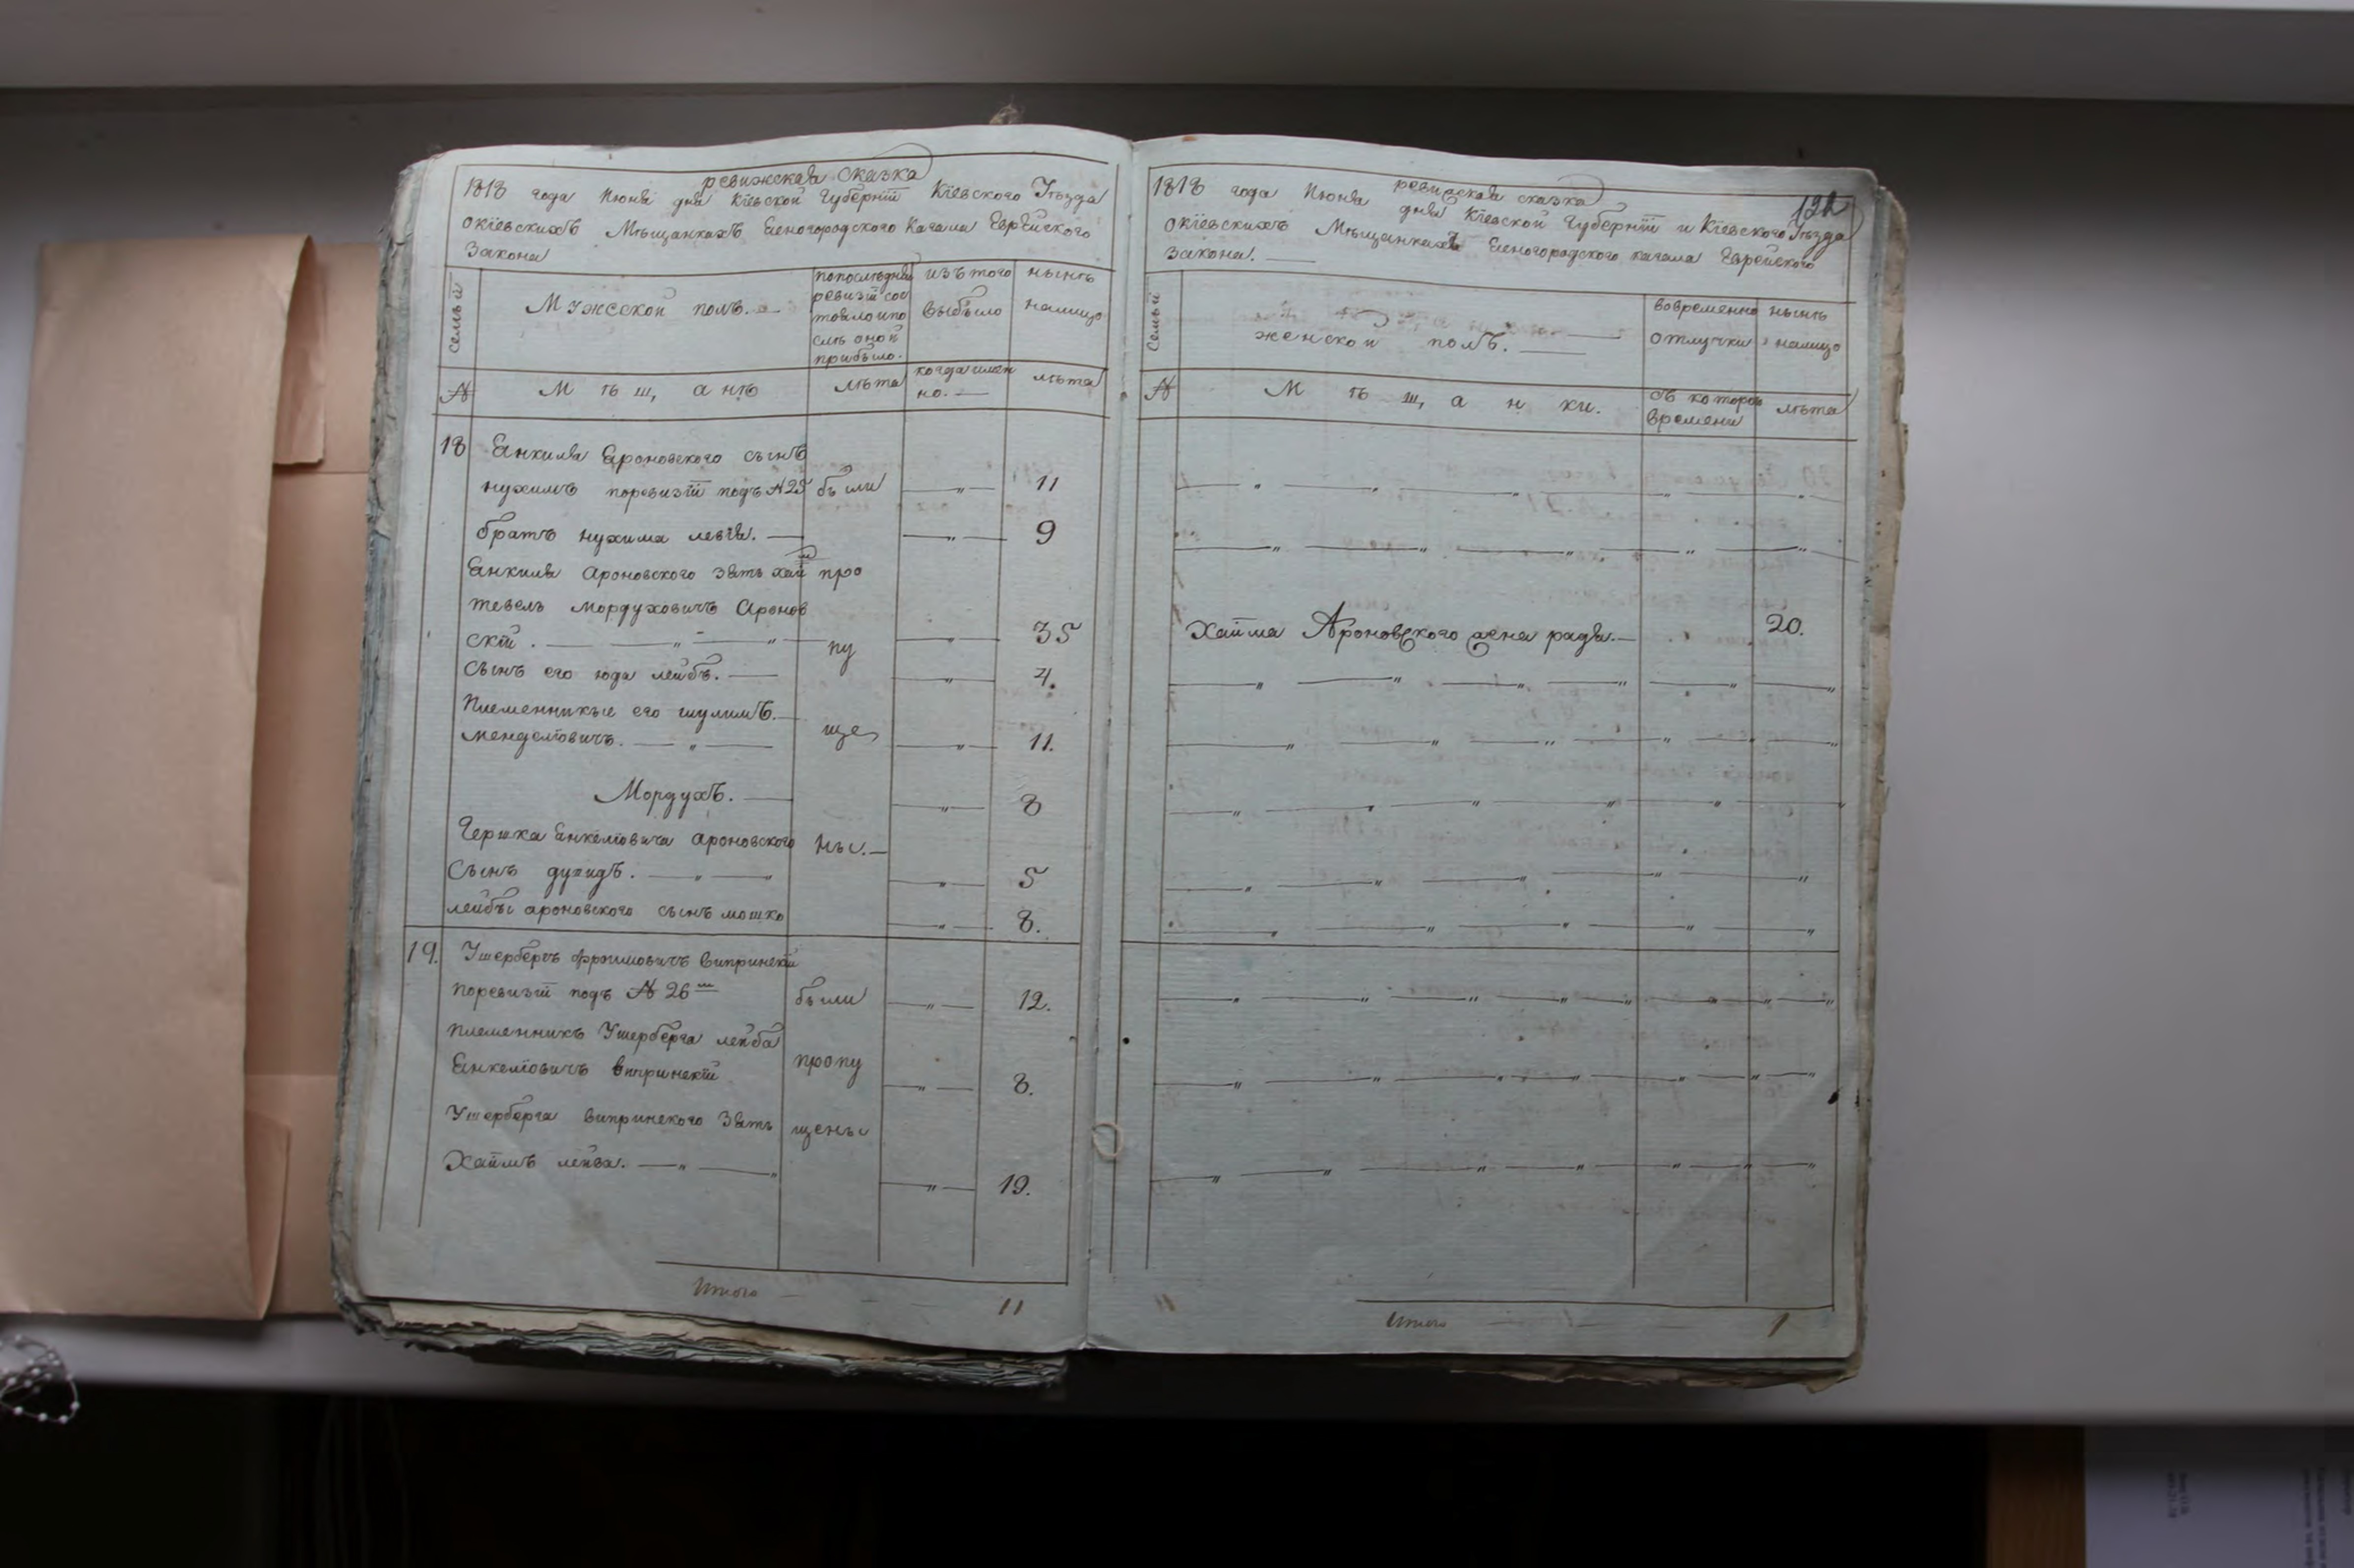 ревижская сказка
1818 года Июня дня Кіевской Губерніи Кіевского Уѣзда
окіевскихъ Мѣщанкахъ Беногородского Кагала Еврейского
Закона
Семьи
Мужеской полъ.
попослѣдней ревизіи состояло ипослѣ оной прибыло.
изътого выбыло
нынѣ налицо
№
М ѣ щ а нѣ
лѣта
когда имен но.
лѣта
18 Енкиля Ароновского сынъ
нухимъ поревизіи подъ №25 были 11
братъ нухима левія. 9
Енкиля Ароновского зять хаим про
тевель Мордуховичъ Аронов
скій. пу 35
сынъ его юда лейбъ. 4.
Племенникые его шулимъ.
менделіовичъ. ще 11.
Мордухъ. 8
Гершка Енкеліовича Ароновского ны.
Сынъ духидъ. 5
лейбы ароновского сынъ мошко 8.
19. Ушерберъ фроимовичъ випринскій
поревизіи подъ № 26 были 12.
племенникъ Ушерберга лейба
Енкеліовичъ випринскій пропу 8.
Ушерберга випринского зять щены
Хаимъ лейзя. 19.
Итого 11
122
ревижская сказка
1818 года Июня дня Кіевской Губерніи и Кіевского Уѣзда
окіевскихъ Мѣщанкахъ Беногородского кагала Еврейского
закона.
Семьи
женской полъ.
вовременно отлучки
нынѣ налицо
№
М ѣ щ а н ки.
съ котораго времени
лѣта
Хаима Ароновского жена рыдя. 20.
Итого 1